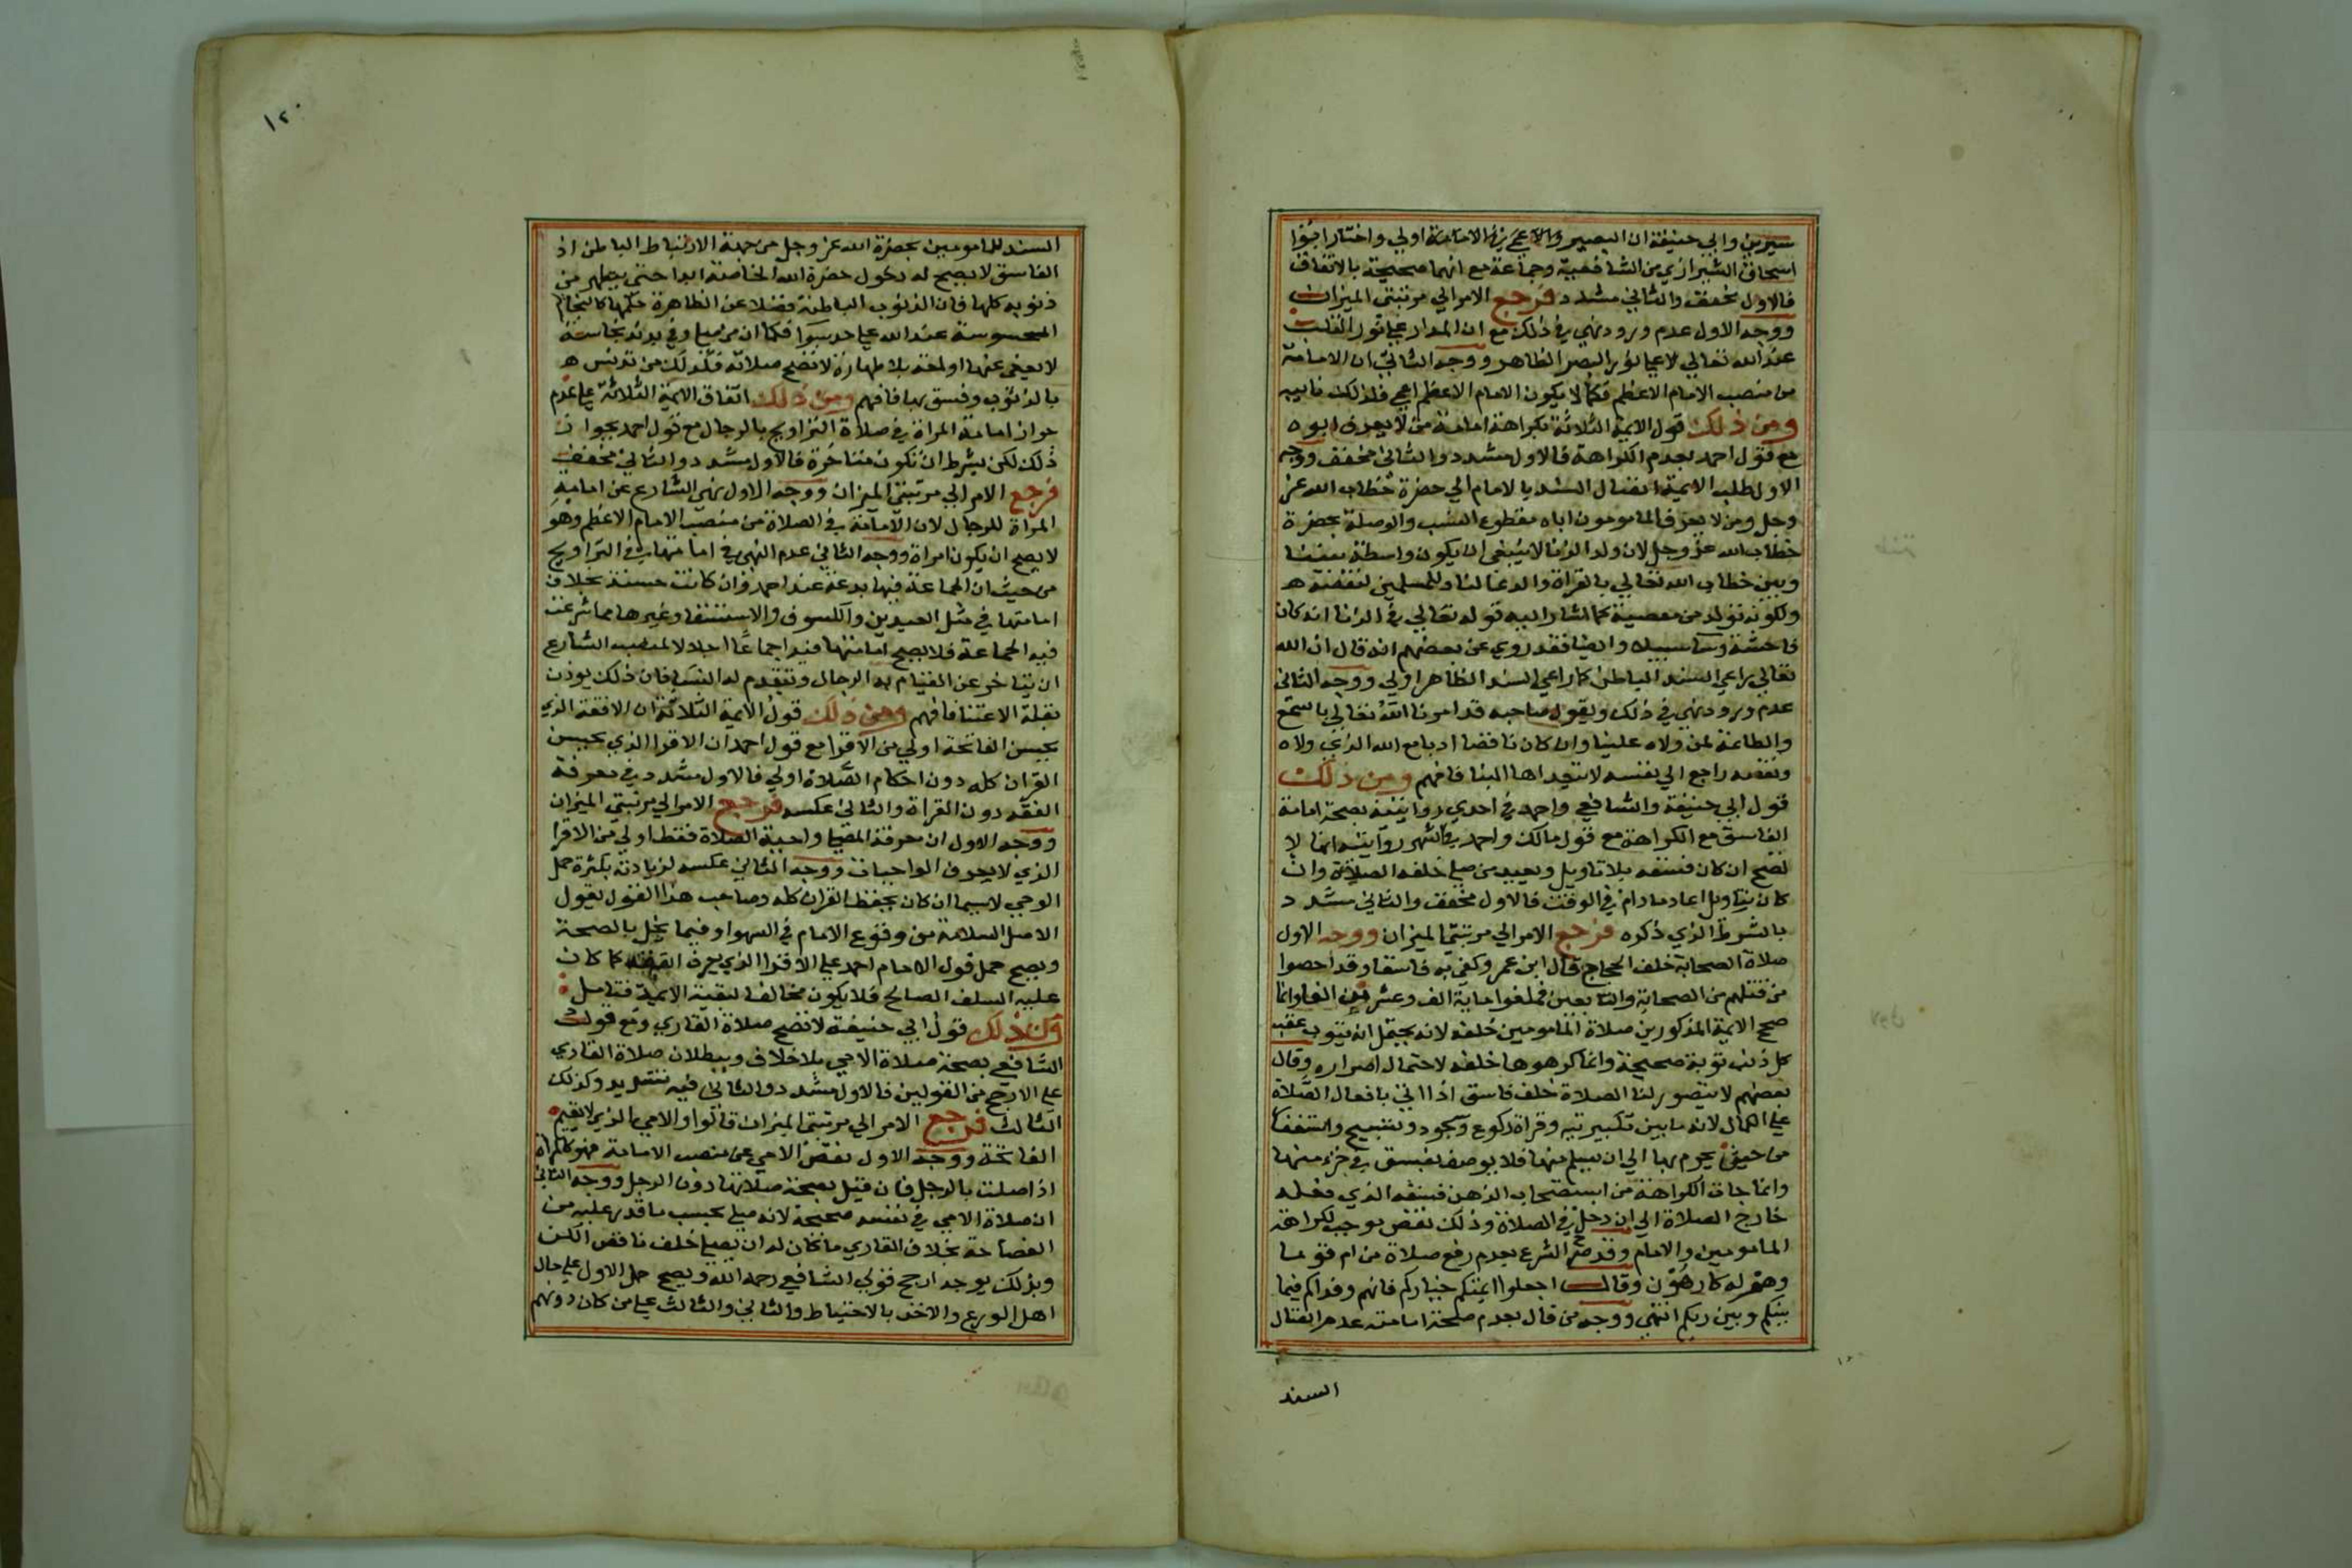 سيرين وابي حنيفة ان البصير والاعمى في الامامة اولي واختار ابو
اسحاق الشيرازي من الشافعية وجماعة مع انهما صحيحة بالاتفاق
فالاول مخفف والثاني مشدد فرجع الامر الي مرتبتي الميزان
ووجه الاول عدم ورود نهي في ذلك مع ان المدار علي نور القلب
عند الله تعالي لا علي نور البصر الظاهر ووجه الثاني ان الامامة
من منصب الامام الاعظم فكما لا يكون الامام الاعظم اعمي فلذلك نايبه
ومن ذلك قول الايمة الثلاثة بكراهة امامة من لا يعرف ابوه
مع قول احمد بعدم الكراهة فالاول مشدد والثاني مخفف ووجه
الاول طلب الايمة اتصال السند بالامام الي حضرة خطاب الله عز
وجل ومن لا يعرف المامومون اباه مقطوع النسب والوصلة بحضرة
خطاب الله عز وجل لان ولد الزنا لا ينبغي ان يكون واسطة بيننا
وبين خطاب الله تعالي بالقراة والدعا لنا وللمسلمين لنقصه
ولكونه تولد من معصية كما اشار اليه قوله تعالي في الزنا انه كان
فاحشة وسا سبيلا وايضا فقد روي عن بعضهم انه قال ان الله
تعالي يراعي السند الباطن كما راعي السند الظاهر اولي ووجه الثاني
عدم ورود نهي في ذلك ويقول صاحبه قد امرنا الله تعالي بالسمع
والطاعة لمن ولاه علينا وان كان ناقصا ادبا مع الله الذي ولاه
ونقصه راجع الي نفسه لا يتعداها الينا فافهم ومن ذلك
قول ابي حنيفة والشافعي واحمد في احدي روايتيه بصحة امامة
الفاسق مع الكراهة مع قول مالك واحمد في اشهر روايتيه انها لا
تصح ان كان فسقه بلا تاويل ويعيد من صلي خلفه الصلاة وان
كان بتاويل اعاد ما دام في الوقت فالاول مخفف والثاني مشدد
بالشرط الذي ذكره فرجع الامر الي مرتبتي الميزان ووجه الاول
صلاة الصحابة خلف الحجاج قال ابن عمر وكفي به فاسقا وقد احصوا
من قتلهم من الصحابة والتابعين فبلغوا ماية الف وعشرين الفا وانما
صحح الايمة المذكورين صلاة المامومين خلفه لانه يحتمل انه يتوب عقب
كل ذنب توبة صحيحة وانما كرهوها خلفه لاحتمال اصراره وقال
بعضهم لا يتصور لنا الصلاة خلف فاسق اذا اتي بافعال الصلاة
علي الكمال لانه ما بين تكبيرتيه وقراة ركوع وسجود وتسبيح واستغفار
من حين يحرم بها الي ان يسلم منها فلا يوصف بفسق في جزء منها
وانما جات الكراهة من استصحاب الذهن فسقه الذي فعله
خارج الصلاة الي ان دخل في الصلاة وذلك نقص يوجب كراهة
المامومين والامام وقد صرح الشرع بعدم رفع صلاة من ام قوما
وهم له كارهون وقال اجعلوا ايمتكم خياركم فانهم وفدكم فيما
بينكم وبين ربكم انتهي ووجه من قال بعدم صحة امامته عدم اتصال
السند
١٢٠
السند للمامومين بحضرة الله عز وجل من جهة الارتباط الباطن اذ
الفاسق لا يصح له دخول حضرة الله الخاصة ابدا حتى يطهر من
ذنوبه كلها فان الذنوب الباطنة فضلا عن الظاهرة حكمها كالنجاسة
المحسوسة عند الله علي حد سوا فكما ان من صلي وفي بدنه نجاسة
لا يعفى عنها او لمعة بلا طهارة لا تصح صلاته فكذلك من تدنس
بالذنوب وفسق بها فافهم ومن ذلك اتفاق الايمة الثلاثة علي عدم
جواز امامة المراة في صلاة التراويح بالرجال مع قول احمد بجواز
ذلك لكن بشرط ان تكون متاخرة فالاول مشدد والثاني مخفف
فرجع الامر الي مرتبتي الميزان ووجه الاول نهي الشارع عن امامة
المراة للرجال لان الامامة في الصلاة من منصب الامام الاعظم وهو
لا يصح ان يكون امراة ووجه الثاني عدم النهي في امامتها في التراويح
من حيث ان الجماعة فيها بدعة عند احمد وان كانت حسنة بخلاف
امامتها في مثل العيدين والكسوف والاستسقا وغيرها مما شرعت
فيه الجماعة فلا يصح امامتها فيه اجماعا اجلالا لمنصب الشارع
ان يتاخر عن القيام به الرجال وتتقدم له النسا فان ذلك يوذن
بقلة الاعتنا فافهم ومن ذلك قول الايمة الثلاثة ان الافقه الذي
يحسن الفاتحة اولي من الاقرا مع قول احمد ان الاقرا الذي يحسن
القران كله دون احكام الصلاة اولي فالاول مشدد في معرفة
الفقه دون القراة والثاني عكسه فرجع الامر الي مرتبتي الميزان
ووجه الاول ان معرفة الفقيه واجبة الصلاة فقط اولي من الاقرا
الذي لا يعرف الواجبات ووجه الثاني عكسه لزيادته بكثرة حمل
الوحي لا سيما ان كان يحفظ القران كله وصاحب هذا القول يقول
الاصل السلامة من وقوع الامام في السهو او فيما يخل بالصحة
ويصح حمل قول الامام احمد علي الاقرا الذي يعرف الفقه كما كان
عليه السلف الصالح فلا يكون مخالفا لبقية الايمة فتامل
ومن ذلك قول ابي حنيفة لا تصح صلاة القاري ومع قول
الشافعي بصحة صلاة الامي بلا خلاف وببطلان صلاة القاري
علي الارجح من القولين فالاول مشدد والثاني فيه تشديد وكذلك
الثالث فرجع الامر الي مرتبتي الميزان قالوا والامي الذي لا يقيم
الفاتحة ووجه الاول نقص الامي عن منصب الامامة فهو كالمراة
اذا صلت بالرجل فان قيل بصحة صلاتها دون الرجل ووجه الثاني
ان صلاة الامي في نفسه صحيحة لانه صلي بحسب ما قدر عليه من
الفصاحة بخلاف القاري ما كان له ان يصلي خلف ناقص الكن
وبذلك يوجه ارجح قولي الشافعي رحمه الله ويصح حمل الاول علي حال
اهل الورع والاخذ بالاحتياط والثاني والثالث علي من كان دونهم